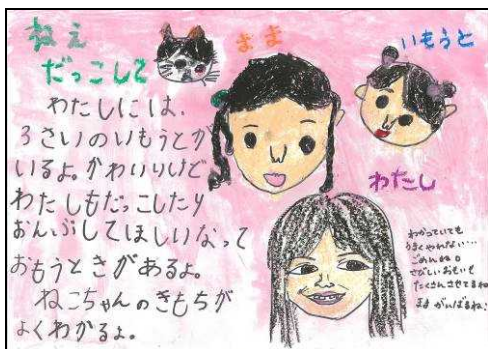 ねえ
だっこして
まま
いもうと
わたしには、
3さいのいもうとが
いるよ。かわいいけど
わたしもだっこしたり
おんぶしてほしいなって
おもうときがあるよ。
ねこちゃんのきもちが
よくわかるよ。
わたし
わかっていても
うまくやれない…
ごめんね。
さびしいおもいを
たくさんさせてるね
まま がんばるね!